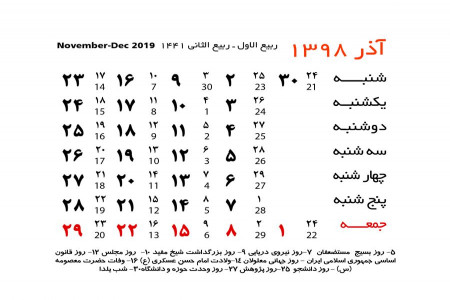 آذر ۱۳۹۸ ربیع الاول ـ ربیع الثانی ۱۴۴۱ November-Dec 2019
شنبه ۲۴ 21 ۳۰ ۲۵ 23 ۲ ۳ 30 ۹ ۱۰ 7 ۱۶ ۱۷ 14 ۲۳
یکشنبه ۲۶ 24 ۳ ۴ 1 ۱۰ ۱۱ 8 ۱۷ ۱۸ 15 ۲۴
دوشنبه ۲۷ 25 ۴ ۵ 2 ۱۱ ۱۲ 9 ۱۸ ۱۹ 16 ۲۵
سه شنبه ۲۸ 26 ۵ ۶ 3 ۱۲ ۱۳ 10 ۱۹ ۲۰ 17 ۲۶
چهار شنبه ۲۹ 27 ۶ ۷ 4 ۱۳ ۱۴ 11 ۲۰ ۲۱ 18 ۲۷
پنج شنبه ۱ 28 ۷ ۸ 5 ۱۴ ۱۵ 12 ۲۱ ۲۲ 19 ۲۸
جمعه ۲۴ 22 ۱ ۲ 29 ۸ ۹ 6 ۱۵ ۱۶ 13 ۲۲ ۲۳ 20 ۲۹
۵- روز بسیج مستضعفان ۷- روز نیروی دریایی ۹- روز بزرگداشت شیخ مفید ۱۰- روز مجلس ۱۲- روز قانون
اساسی جمهوری اسلامی ایران - روز جهانی معلولان ۱۴-ولادت امام حسن عسکری (ع) ۱۶- وفات حضرت معصومه
(س) - روز دانشجو ۲۵- روز پژوهش ۲۷- روز وحدت حوزه و دانشگاه ۳۰- شب یلدا